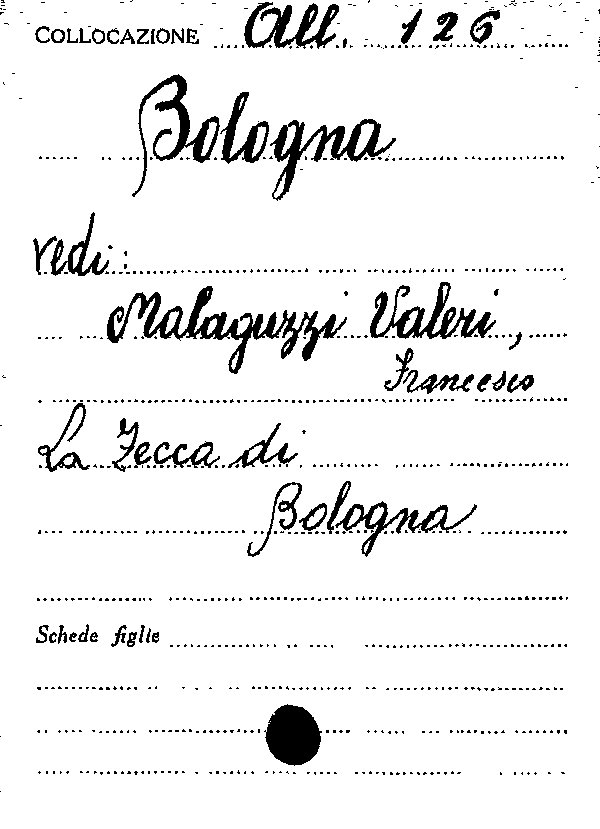 COLLOCAZIONE All. 126
Bologna
vedi:
Malaguzzi Valeri,
Francesco
La Zecca di
Bologna
Schede figlie